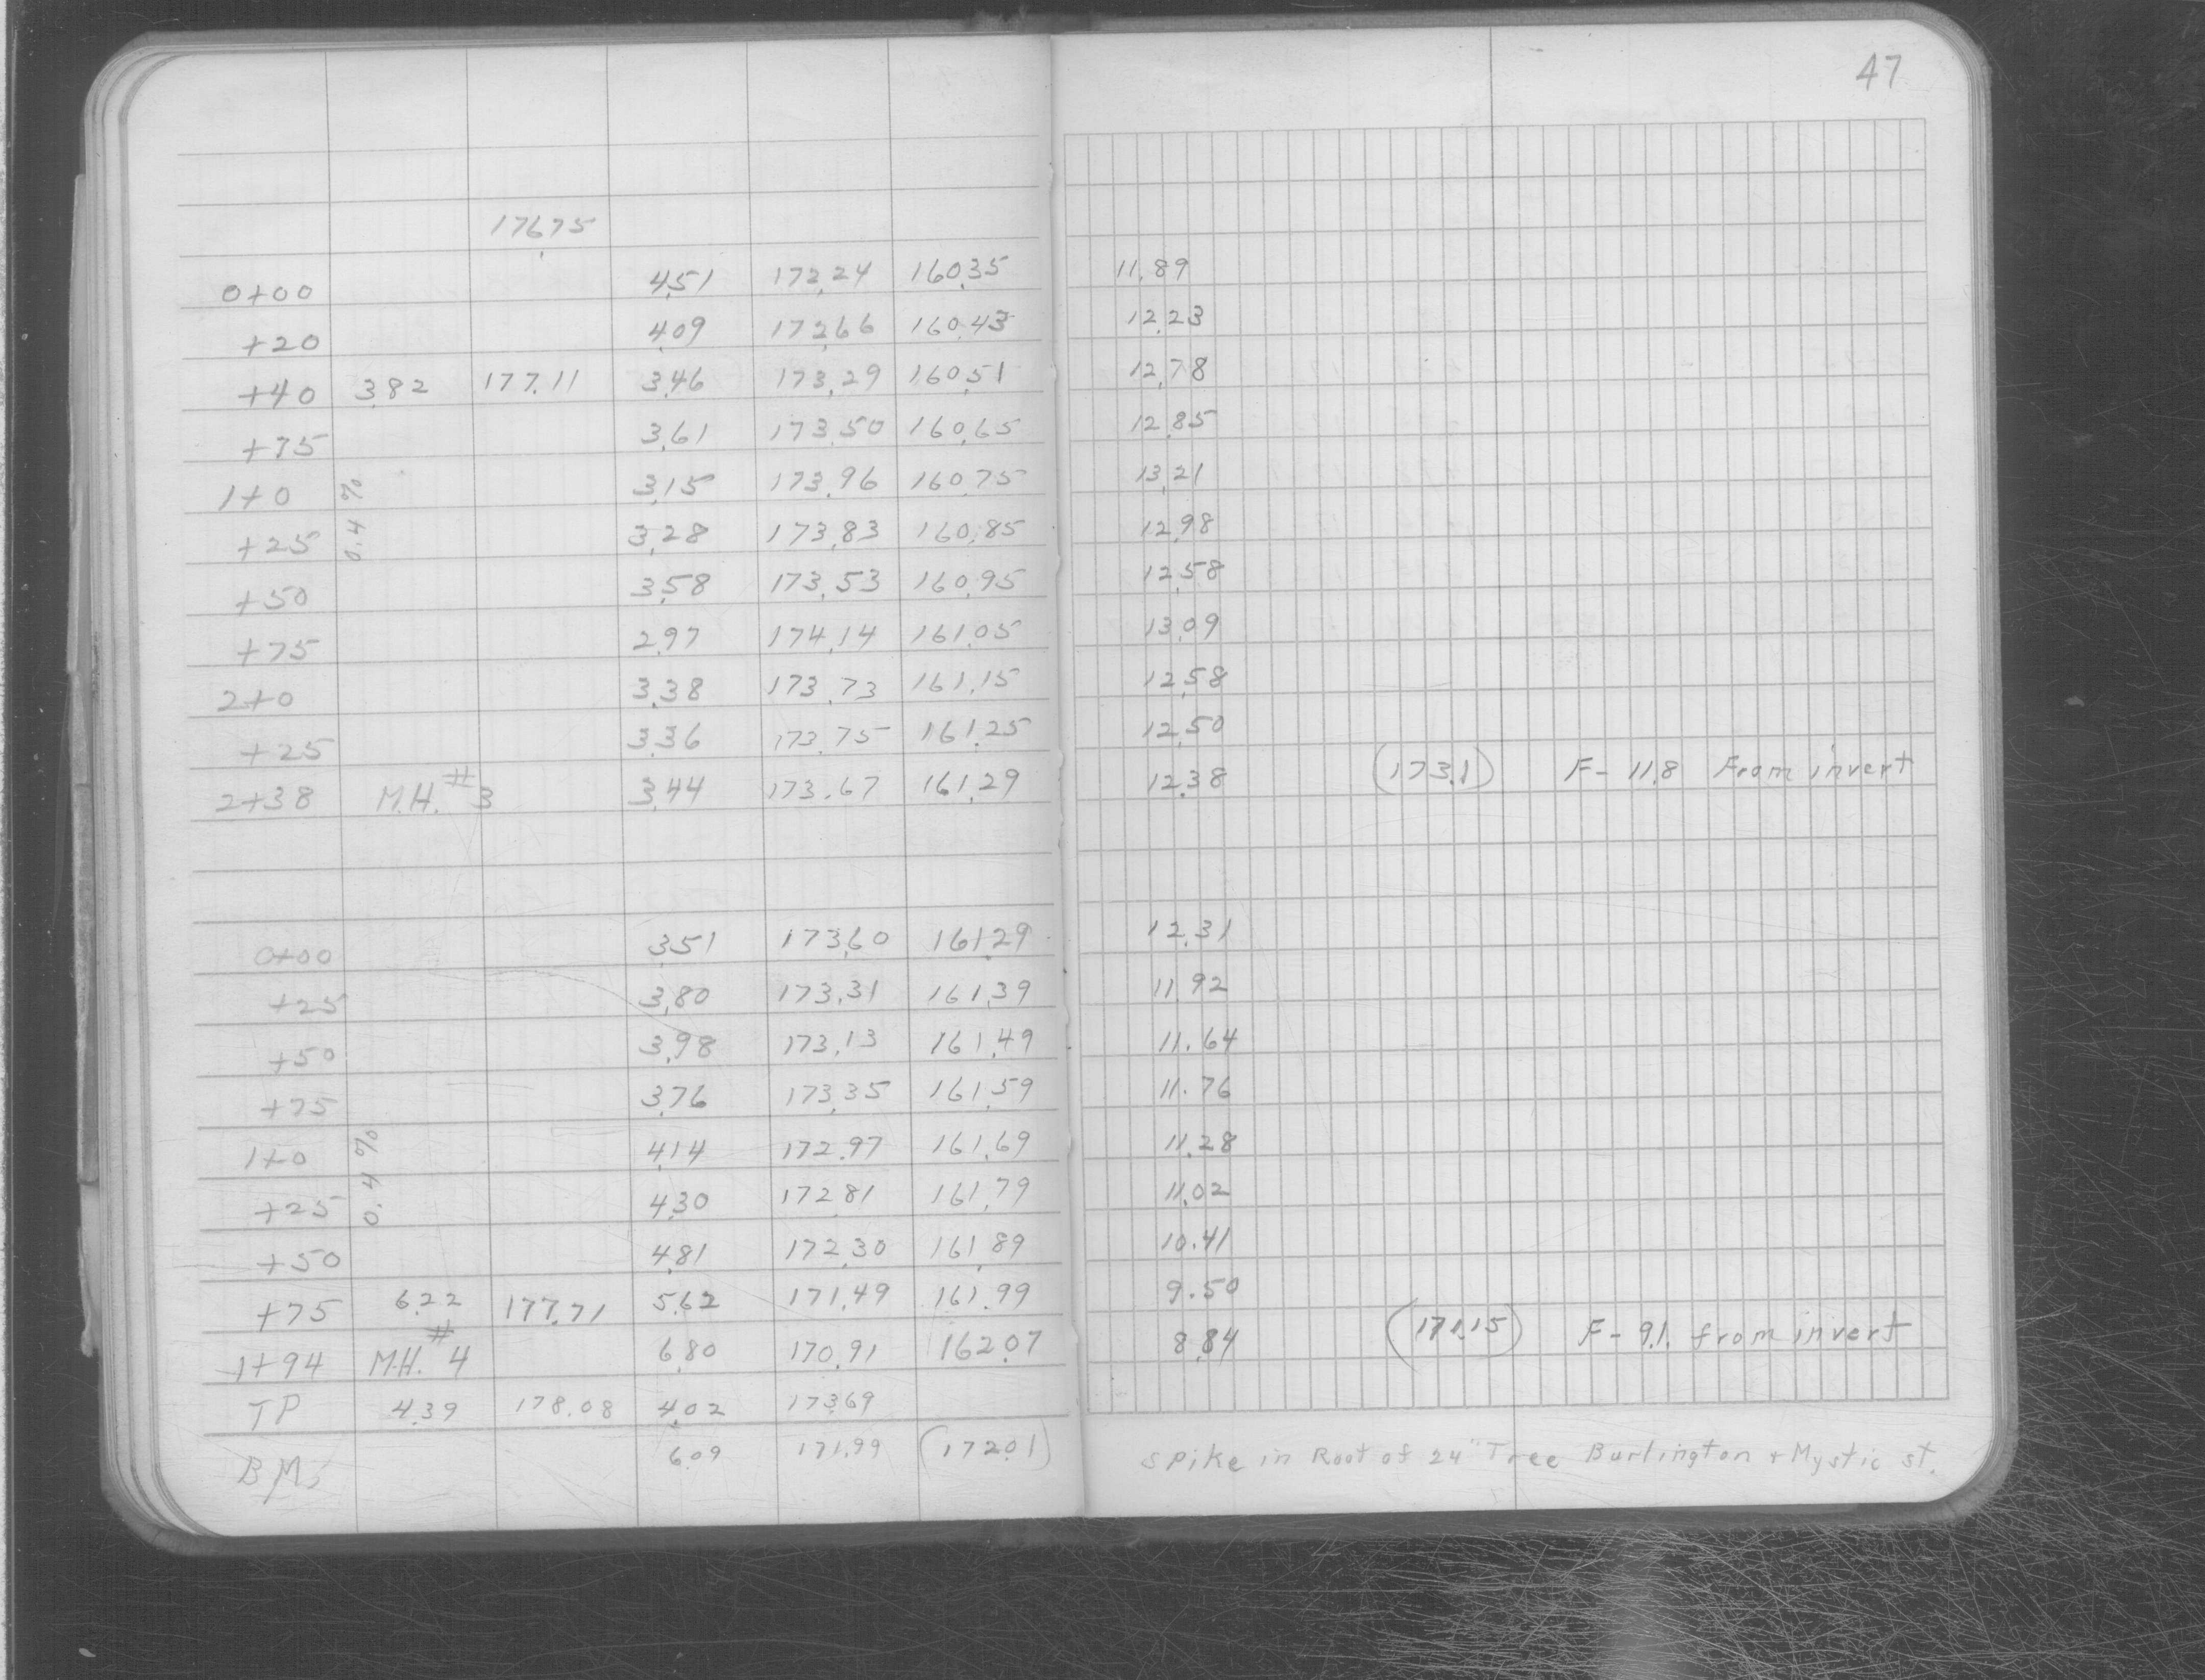 47
176.75
0+00 4.51 172.24 160.35 11.89
+20 4.09 172.66 160.43 12.23
+40 3.82 177.11 3.46 173.29 160.51 12.78
+75 3.61 173.50 160.65 12.85
1+0 3.15 173.96 160.75 13.21
+25 0.4% 3.28 173.83 160.85 12.98
+50 3.58 173.53 160.95 12.58
+75 2.97 174.14 161.05 13.09
2+0 3.38 173.73 161.15 12.58
+25 3.36 173.75 161.25 12.50
2+38 M.H. #3 3.44 173.67 161.29 12.38 (173.1) F- 11.8 From invert
0+00 3.51 173.60 161.29 12.31
+25 3.80 173.31 161.39 11.92
+50 3.98 173.13 161.49 11.64
+75 3.76 173.35 161.59 11.76
1+0 4.14 172.97 161.69 11.28
+25 0.4% 4.30 172.81 161.79 11.02
+50 4.81 172.30 161.89 10.41
+75 6.22 177.71 5.62 171.49 161.99 9.50
1+94 M.H. #4 6.80 170.91 162.07 8.84 (171.15) F- 9.1. from invert
TP 4.39 178.08 4.02 173.69
B.M. 6.09 171.99 (172.01) Spike in Root of 24" Tree Burlington + Mystic st.